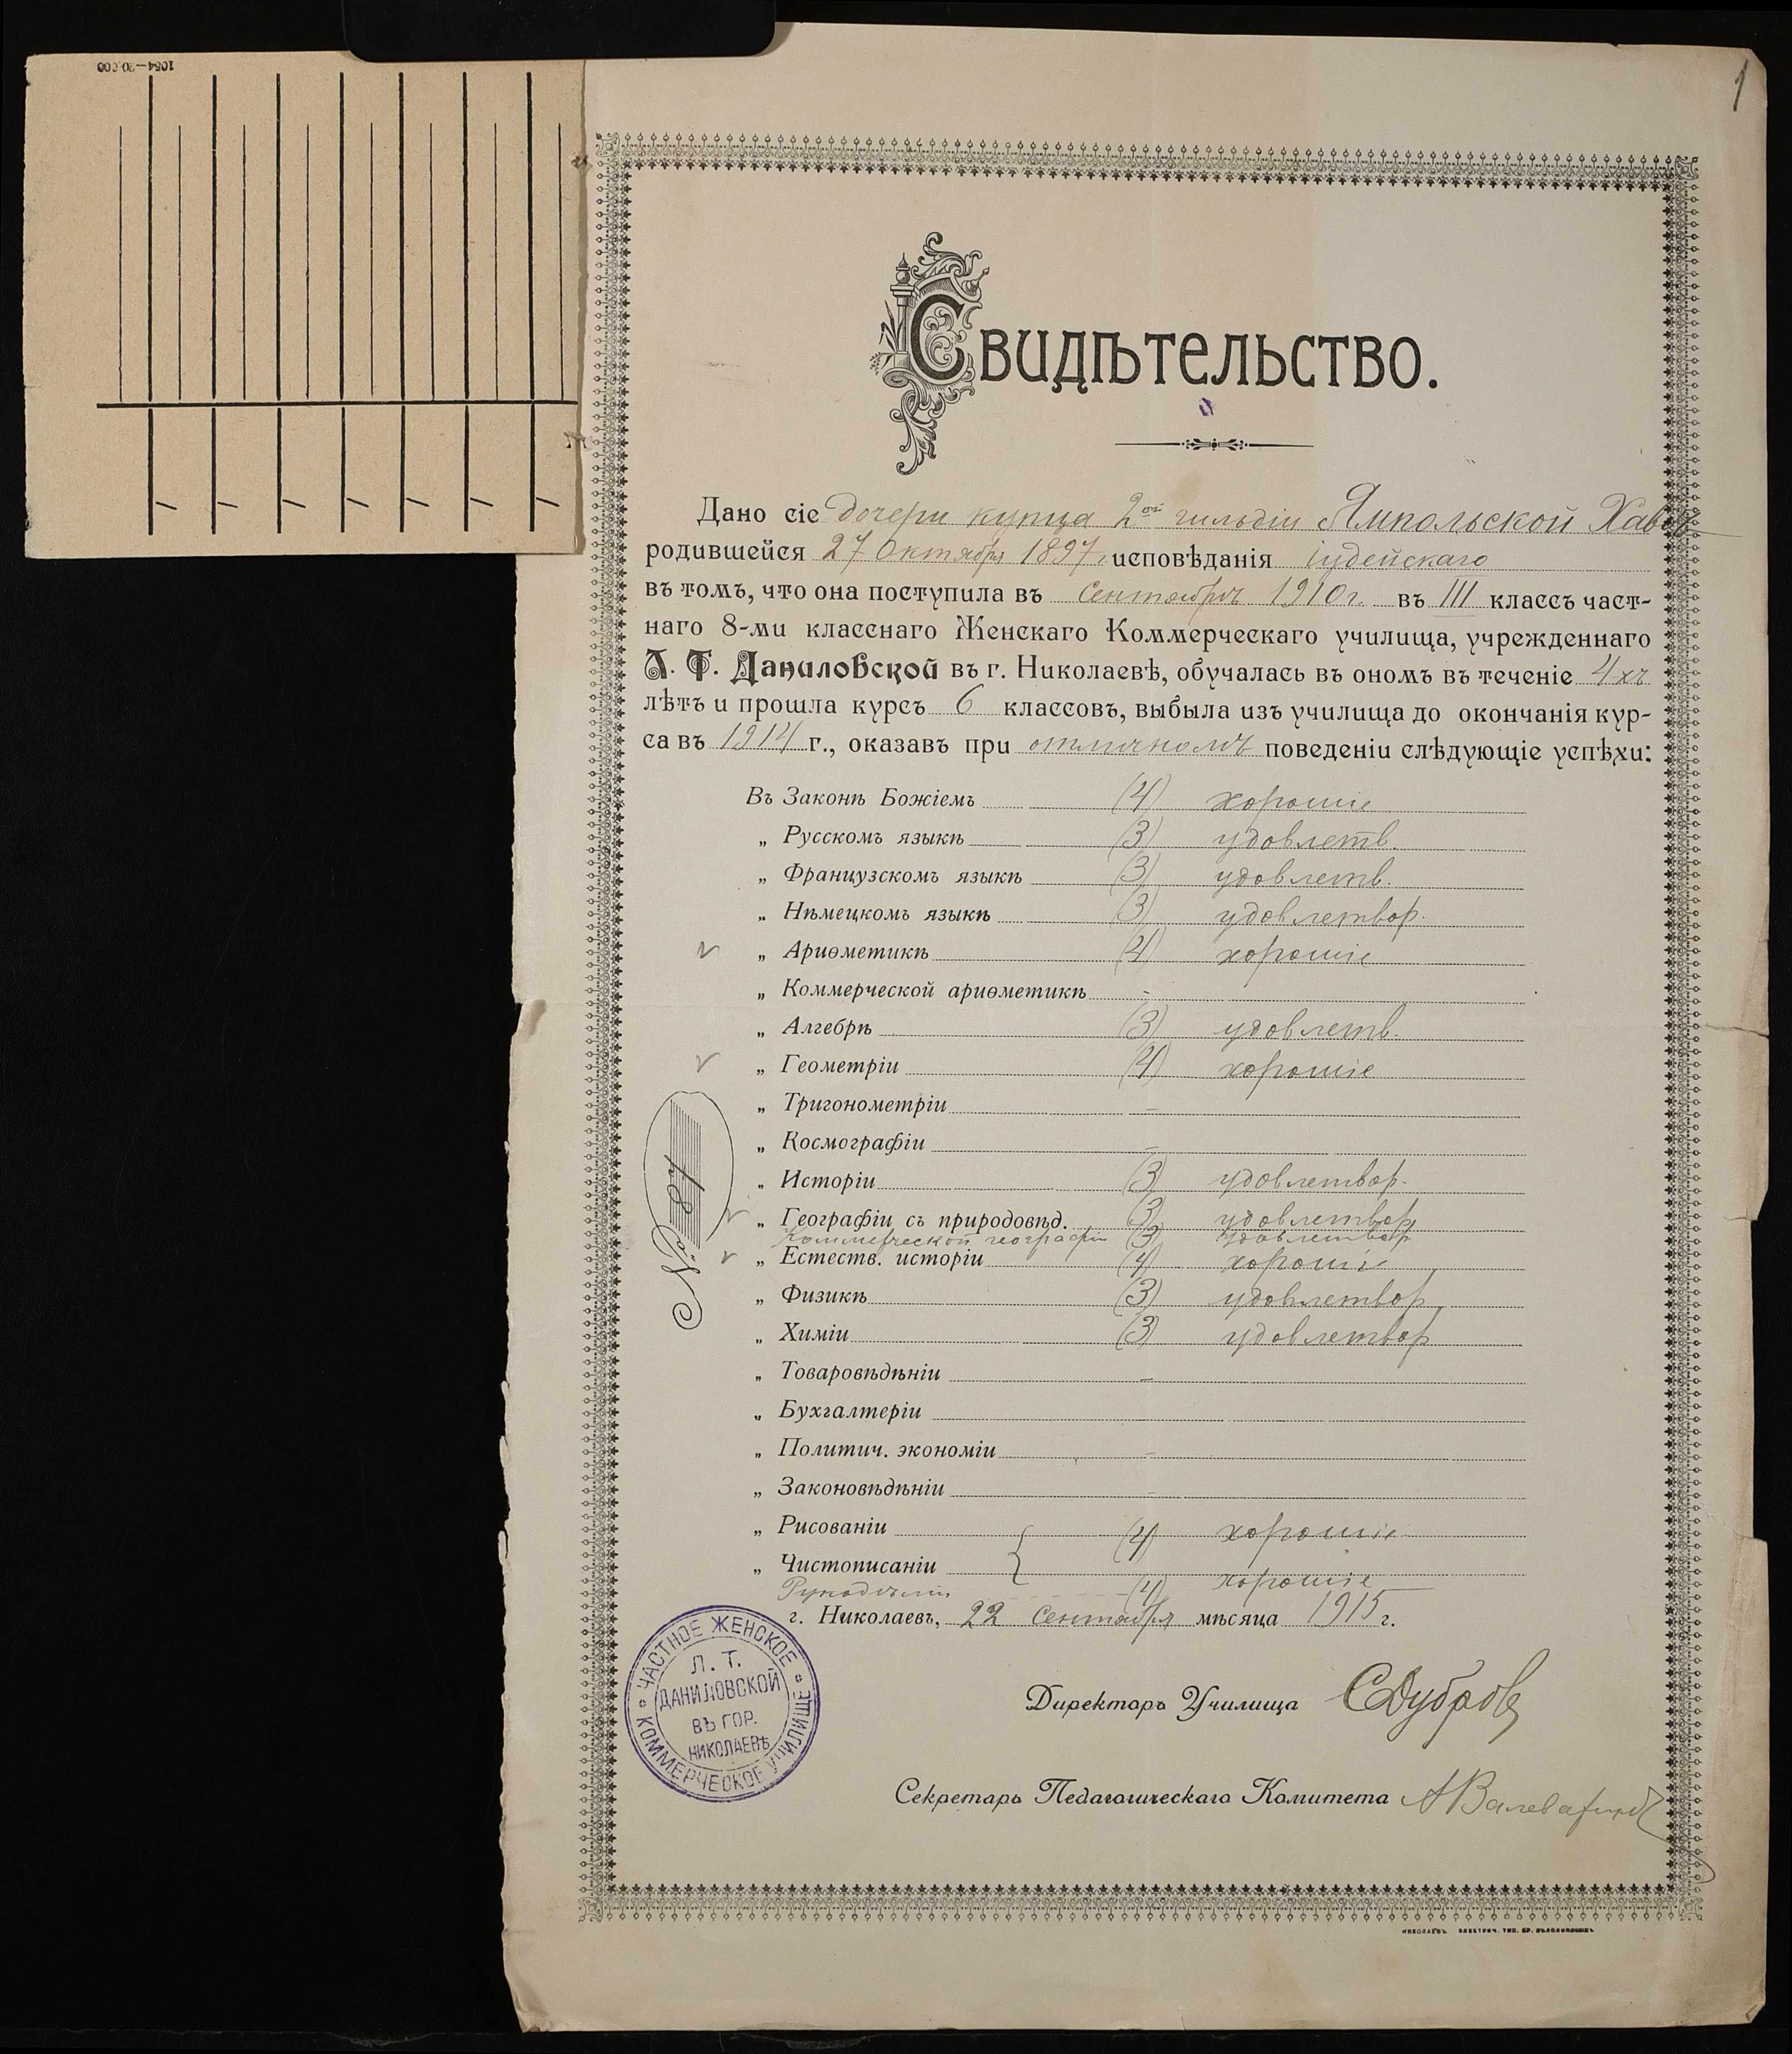 1
1054—20.000
Свидѣтельство.
Дано сіе дочери купца 2ой гильдіи Ямпольской Хавѣ
родившейся 27 Октября 1897 г. исповѣданія іудейскаго
въ томъ, что она поступила въ Сентябрѣ 1910 г. въ III классъ част-
наго 8-ми класснаго Женскаго Коммерческаго училища, учрежденнаго
Л. Т. Даниловской въ г. Николаевѣ, обучалась въ ономъ въ теченіе 4хъ
лѣтъ и прошла курсъ 6 классовъ, выбыла изъ училища до окончанія кур-
са въ 1914 г., оказавъ при отличномъ поведеніи слѣдующіе успѣхи:
Въ Законѣ Божіемъ (4) хорошіе
„ Русскомъ языкѣ (3) удовлетв.
„ Французскомъ языкѣ (3) удовлетв.
„ Нѣмецкомъ языкѣ (3) удовлетвор.
„ Ариѳметикѣ (4) хорошіе
„ Коммерческой ариѳметикѣ -
„ Алгебрѣ (3) удовлетв.
„ Геометріи (4) хорошіе
„ Тригонометріи —
„ Космографіи —
„ Исторіи (3) удовлетвор.
„ Географіи съ природовѣд. (3) удовлетвор
Коммерческой географіи (3) удовлетвор
„ Естеств. исторіи (4) хорошіе
„ Физикѣ (3) удовлетвор
„ Химіи (3) удовлетвор
„ Товаровѣдѣніи —
„ Бухгалтеріи
„ Политич. экономіи -
„ Законовѣдѣніи -
„ Рисованіи (4) хорошіе
„ Чистописаніи
Рукодѣліи (4) хорошіе
№
г. Николаевъ, 22 Сентября мѣсяца 1915 г.
ЧАСТНОЕ ЖЕНСКОЕ КОММЕРЧЕСКОЕ УЧИЛИЩЕ
Л. Т.
ДАНИЛОВСКОЙ
ВЪ ГОР.
НИКОЛАЕВѢ
Директоръ Училища СДубровъ
Секретарь Педагогическаго Комитета
НИКОЛАЕВЪ. ЭЛЕКТРИЧ. ТИП. БР.